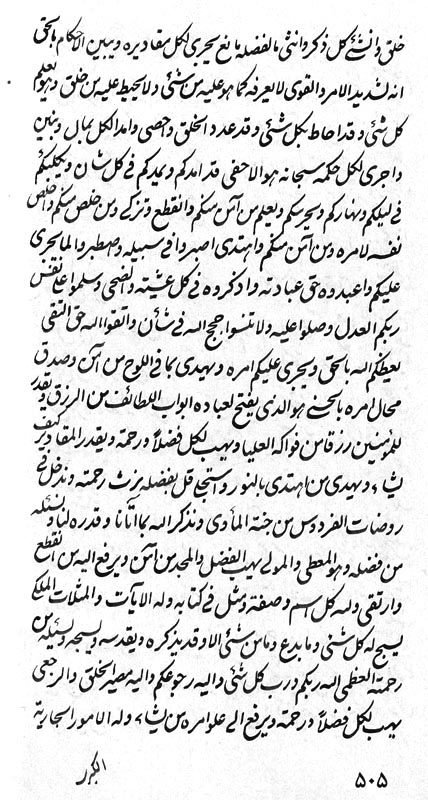 خلق وانشئ كل ذكر وانثى ما لفضله مانع يجرى لكل مقاديره ويبين الاحكام بالحق
انه لشديد الامر والقوى لا يعرفه كما هو عليه من شئ ولا يحيط عليه من خلق وهو يعلم
كل شئ وقد احاط بكل شئ وقدر عدد الخلق واحصى وامد الكل بمال وبنين
واجرى لكل حكمه سبحانه هو الاحفى قد امدكم ويمدكم فى كل شان ويكلئكم
فى ليلكم ونهاركم ويحرسكم ويعلم من آمن منكم وانقطع وتزكى ومن خلص منكم واخلص
نفسه لامره ومن آمن منكم واهتدى اصبروا فى سبيله واصطبروا لما يجرى
عليكم واعبدوه حق عبادته واذكروه فى كل عشية والضحى وسلموا على نفس
ربكم العدل وصلوا عليه ولا تنسوا حجج الله فى شان واتقوا الله حق التقى
يعظكم الله بالحق ويجرى عليكم امره ويهدى بما فى اللوح من آمن وصدق
محال امره بالحسنى هو الذى يفتح لعباده ابواب اللطائف من الرزق ويقدر
للمؤمنين رزقا من فواكه العليا ويهب لكل فضلا ورحمة ويقدر المقادير كيف
يشاء ويهدى من اهتدى بالنور واستجمع قل بفضله يرث رحمته وندخل فى
روضات الفردوس من جنة المأوى ونذكر الله بما اتانا وقدره لنا ونسئله
من فضله وهو المعطى والمولى يهب الفضل والمجد من آمن ويرفع اليه من انقطع
وارتقى وله كل اسم وصفة ومثل فى كتابه وله الايات والمثلات الملكى
يسبح له كل شئ وما بدع وما من شئ الا وقد يذكره ويقدسه ويسبحه ويسئله من
رحمة العظمى الله ربكم ورب كل شئ واليه رجوعكم واليه مصير الخلق والرجعى
يهب لكل فضلا ورحمة ويرفع الى علو امره من يشاء وله الامور الجارية
٥٠٥